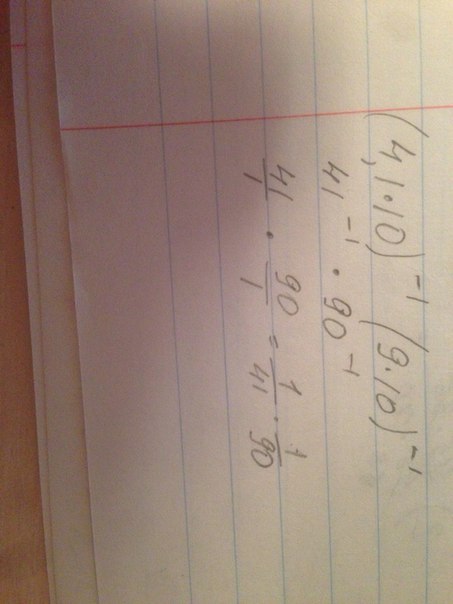 (4,1·10)⁻¹ (9·10)⁻¹
41⁻¹ · 90⁻¹
41/1 · 90/1 = 1/41 · 1/90